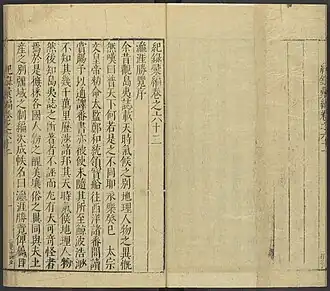 紀錄彙編卷之六十二
瀛涯勝覽序
余昔觀島夷誌載天時氣候之別地理人物之異慨
然嘆曰普天下何若是之不同耶永樂癸巳 太宗
文皇帝勅命太監鄭和統領寶船往西洋諸番開讀
賞賜予以通譯番書亦被使末隨其所至鯨波浩渺
不知其幾千萬里歷涉諸邦其天時氣候地理人物
然後知島夷誌之所著者不誣而尤有大可奇怪者
焉於是摭採各國人物之醜美壤俗之異同與夫土
產之別疆域之制編次成帙名曰瀛涯勝覽俾屬目